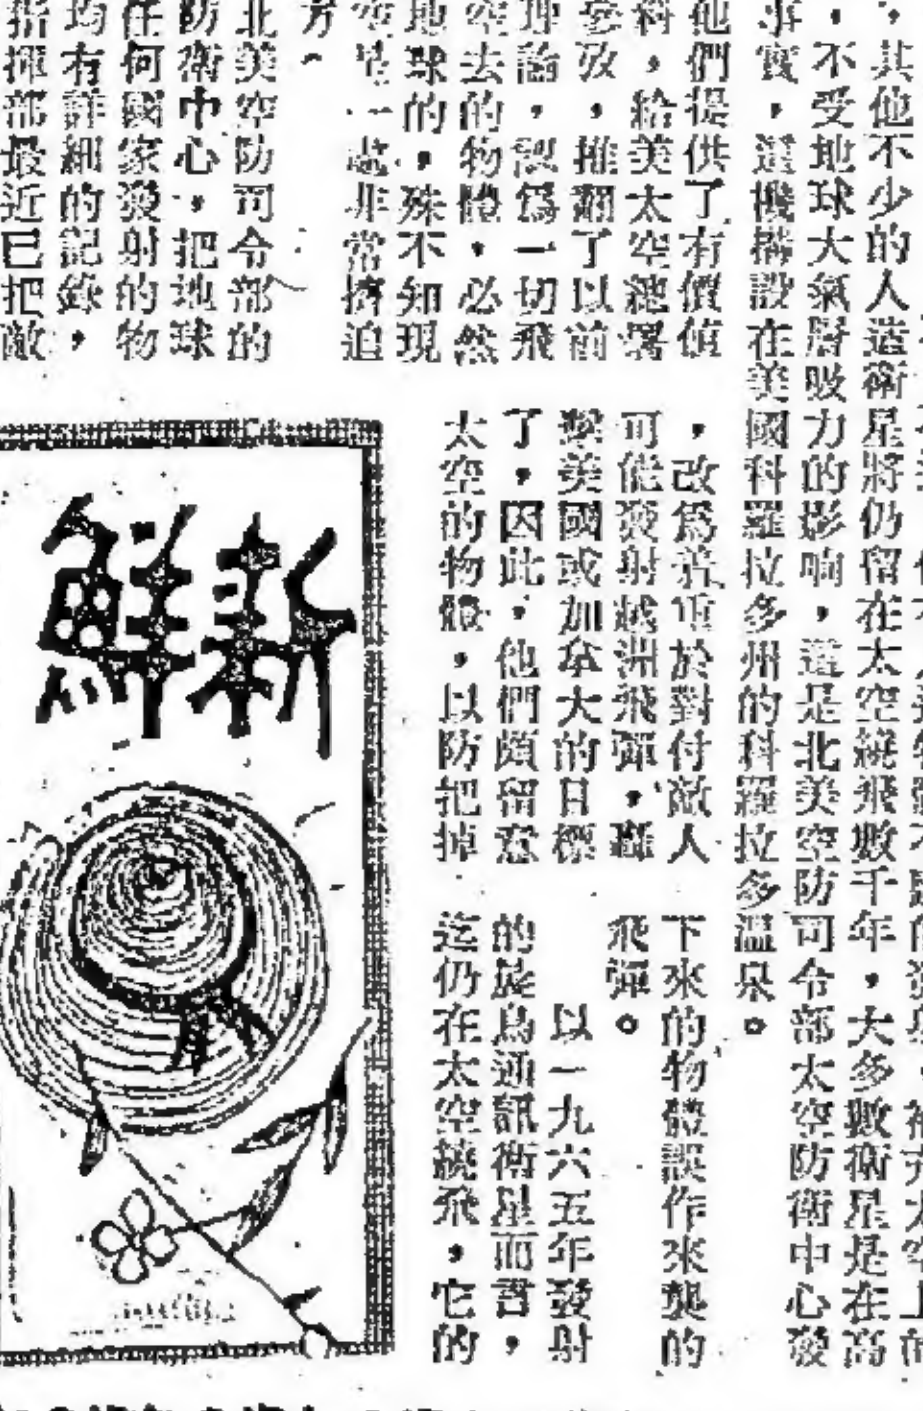 ，其他不少的人造衛星將仍留在太空繞飛數千年，大多數衛星是在高
，不受地球大氣層吸力的影响，這是北美空防司令部太空防衛中心發
事實，這機構設在美國科羅拉多州的科羅拉多溫泉。
他們提供了有價值
料，給美太空總署
參攷，推翻了以前
理論，認爲一切飛
空去的物體，必然
地球的，殊不知現
空是一處非常擠迫
方。
北美空防司令部的
防衛中心，把地球
任何國家發射的物
均有詳細的記錄，
指揮部最近已把敵
，改爲着重於對付敵人
可能發射越洲飛彈，轟
擊美國或加拿大的目標
了，因此，他們頗留意
太空的物體，以防把掉
下來的物體誤作來襲的
飛彈。
以一九六五年發射
的晨鳥通訊衛星而言，
迄仍在太空繞飛，它的
新鮮